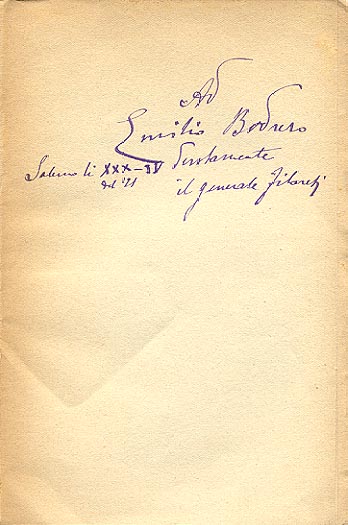 Ad
Emilio Bodrero
devotamente
il generale Filareti
Salerno li XXX-IV
del '21